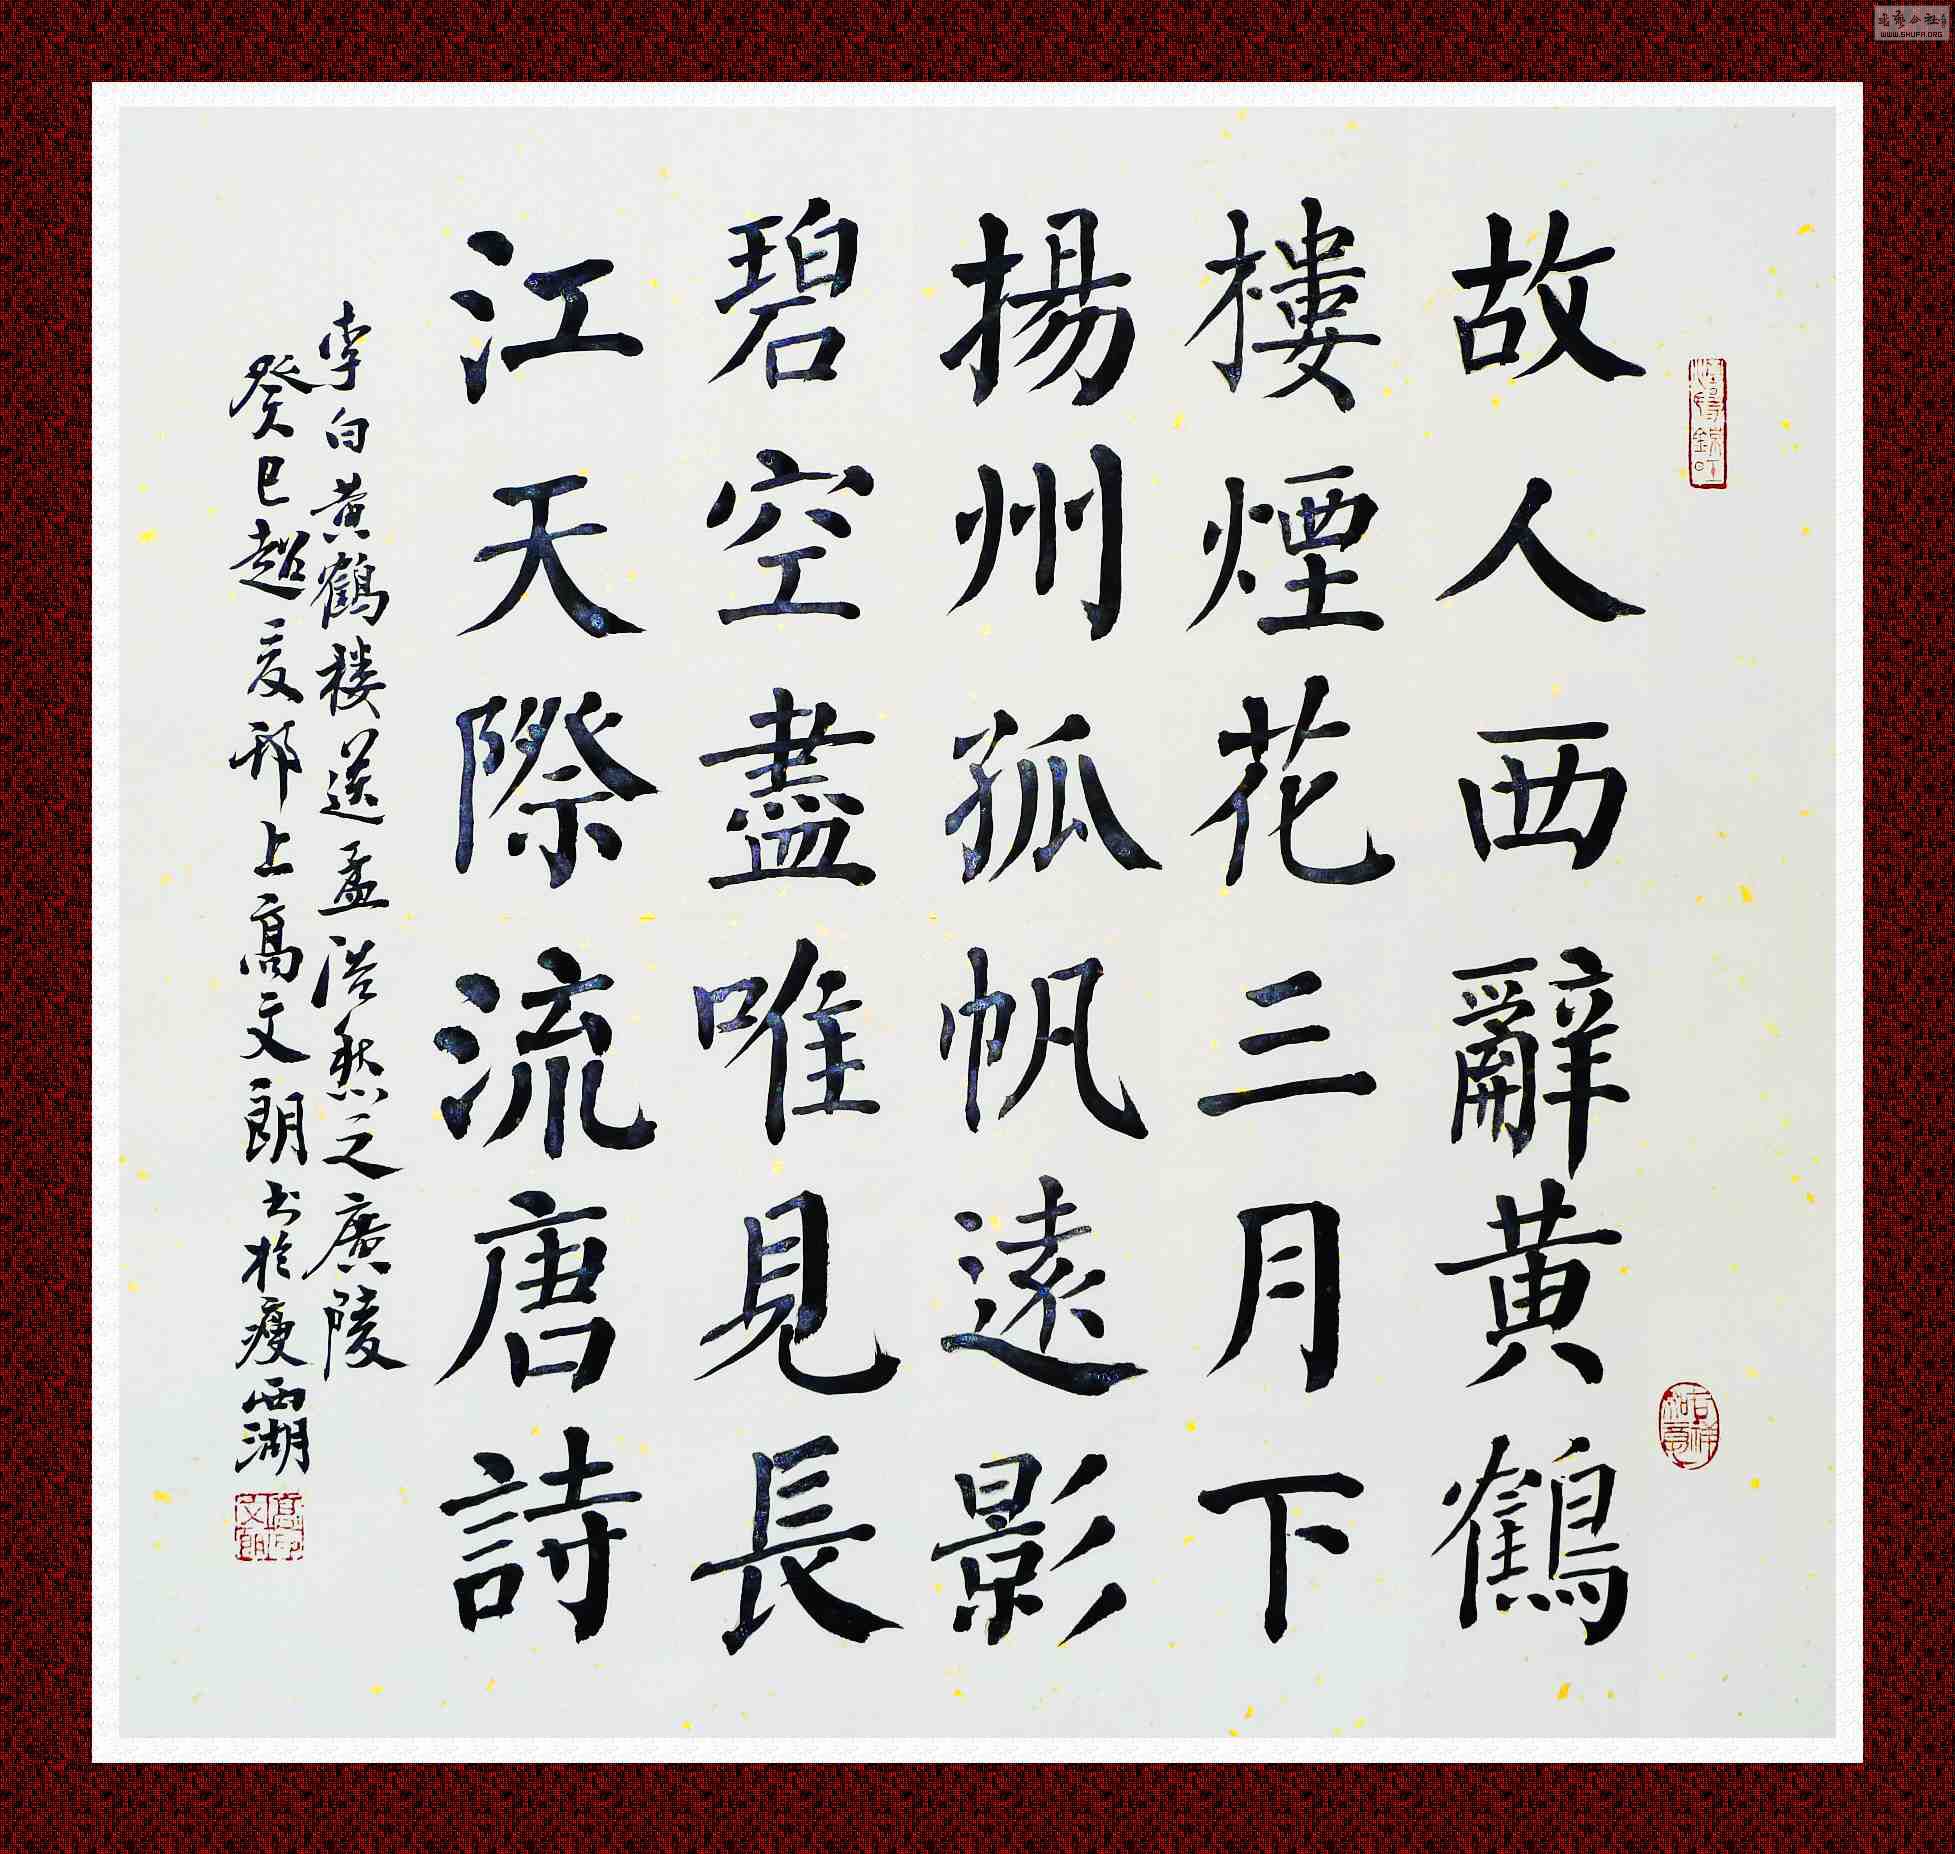 故人西辭黄鶴
樓煙花三月下
揚州孤帆遠影
碧空盡唯見長
江天際流唐詩
李白黄鶴楼送孟浩然之廣陵
癸巳超夏邗上高文朗书於瘦西湖
WWW.SHUFA.ORG